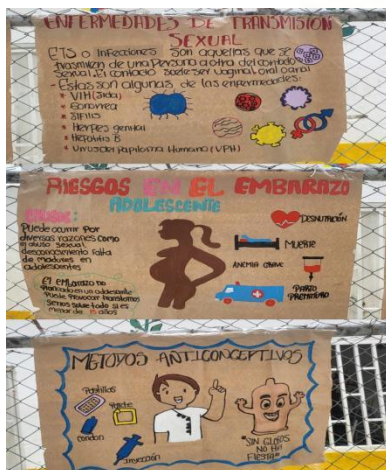 ENFERMEDADES DE TRANSMISION
SEXUAL
ETS o Infecciones son aquellas que se
trasmiten de una Persona a otra del contacto
Sexual. El contacto suele ser vaginal, oral o anal
- Estas son algunas de las enfermedades:
* VIH (Sida)
* Gonorrea
* Sífilis
* Herpes genital
* Hepatitis B
* Virus de Papiloma Humano (VPH)
RIESGOS EN EL EMBARAZO
ADOLESCENTE
Puede ocurrir por
diversas razones como
el abuso sexual,
desconocimiento falta
de madurez en
adolescentes
El embarazo no
planeado en un adolescente
Puede Provocar transtornos
Serios sobre todo si es
menor de 15 años
DESNUTRICIÓN
MUERTE
ANEMIA GRAVE
PARTO
PREMATURO
METODOS ANTICONCEPTIVOS
Pastillas
Parche
Condon
Inyección
"SIN GLOBOS
NO HAY
FIESTA"